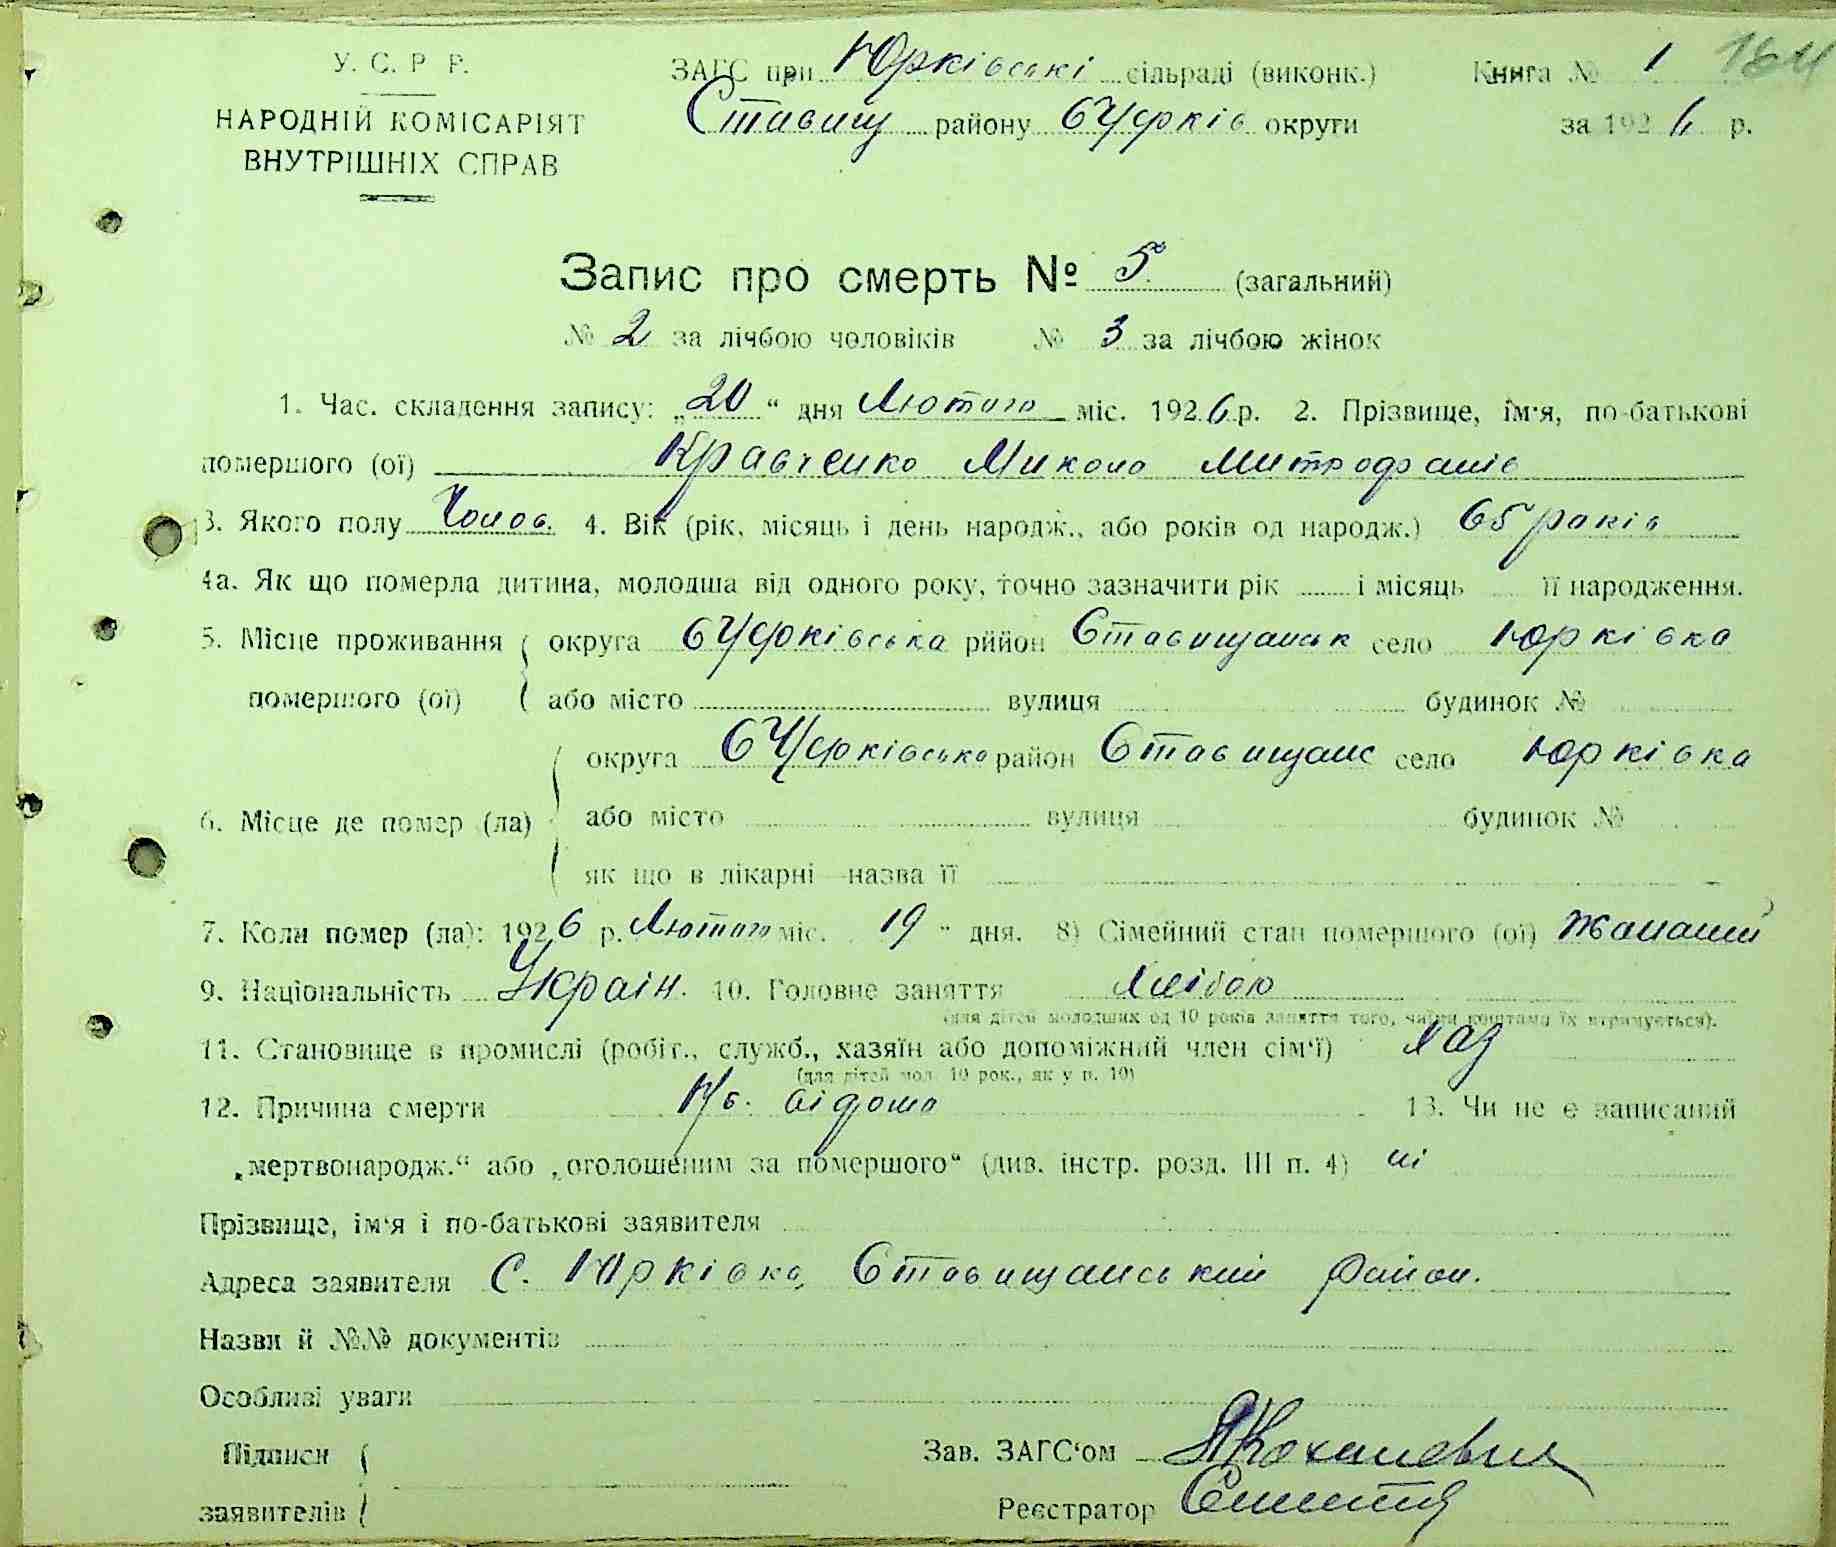 У. С. Р Р.
НАРОДНІЙ КОМІСАРІЯТ
ВНУТРІШНІХ СПРАВ
ЗАГС при Юрківські сільраді (виконк.)
Ставищ району БЦерків округи
Книга № 1 164
за 1926 р.
Запис про смерть № 5 (загальний)
№ 2 за лічбою чоловіків № 3 за лічбою жінок
1. Час. складення запису: „20“ дня Лютого міс. 1926 р. 2. Прізвище, ім'я, по-батькові
помершого (ої) Кравченко Микола Митрофанів
3. Якого полу Чолов. 4. Вік (рік, місяць і день народж., або років од народж.) 65 років
4а. Як що померла дитина, молодша від одного року, точно зазначити рік і місяць її народження.
5. Місце проживання округа БЦерківська рййон Ставищанськ село Юрківка
помершого (ої) або місто вулиця будинок №
округа БЦерківсько район Ставищанс село Юрківка
6. Місце де помер (ла) або місто вулиця будинок №
як що в лікарні—назва її
7. Коли помер (ла): 1926 р. Лютого міс. 19 " дня. 8) Сімейний стан помершого (ої) Жонатий
9. Національність Україн. 10. Головне заняття Хлібор
(для дітей молодших од 10 років заняття того, чиїми коштами їх втримується).
11. Становище в промислі (робіт., служб., хазяїн або допоміжний член сім'ї) Хаз
(для дітей мол. 10 рок., як у п. 10)
12. Причина смерти Не відомо 13. Чи не є записаний
„мертвонародж.“ або „оголошеним за помершого“ (див. інстр. розд. III п. 4) ні
Прізвище, ім'я і по-батькові заявителя
Адреса заявителя С. Юрківка, Ставищанський район.
Назви й №№ документів
Особливі уваги
Підписи
заявителів
Зав. ЗАГС'ом
Реєстратор